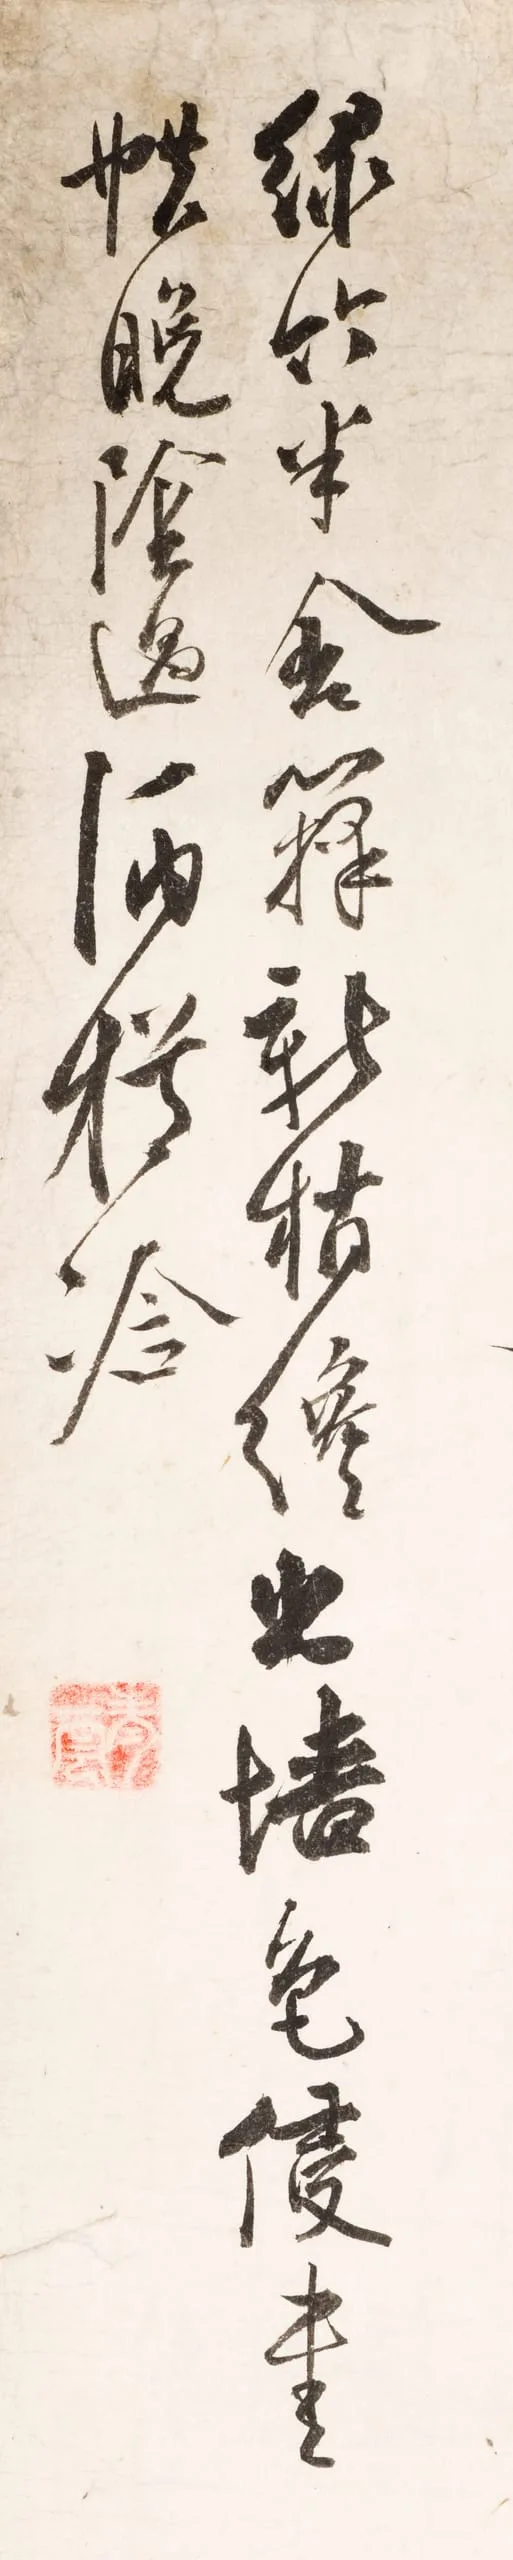 綠竹半含籜新梢纔出墻色侵書
帙晚陰過酒樽涼